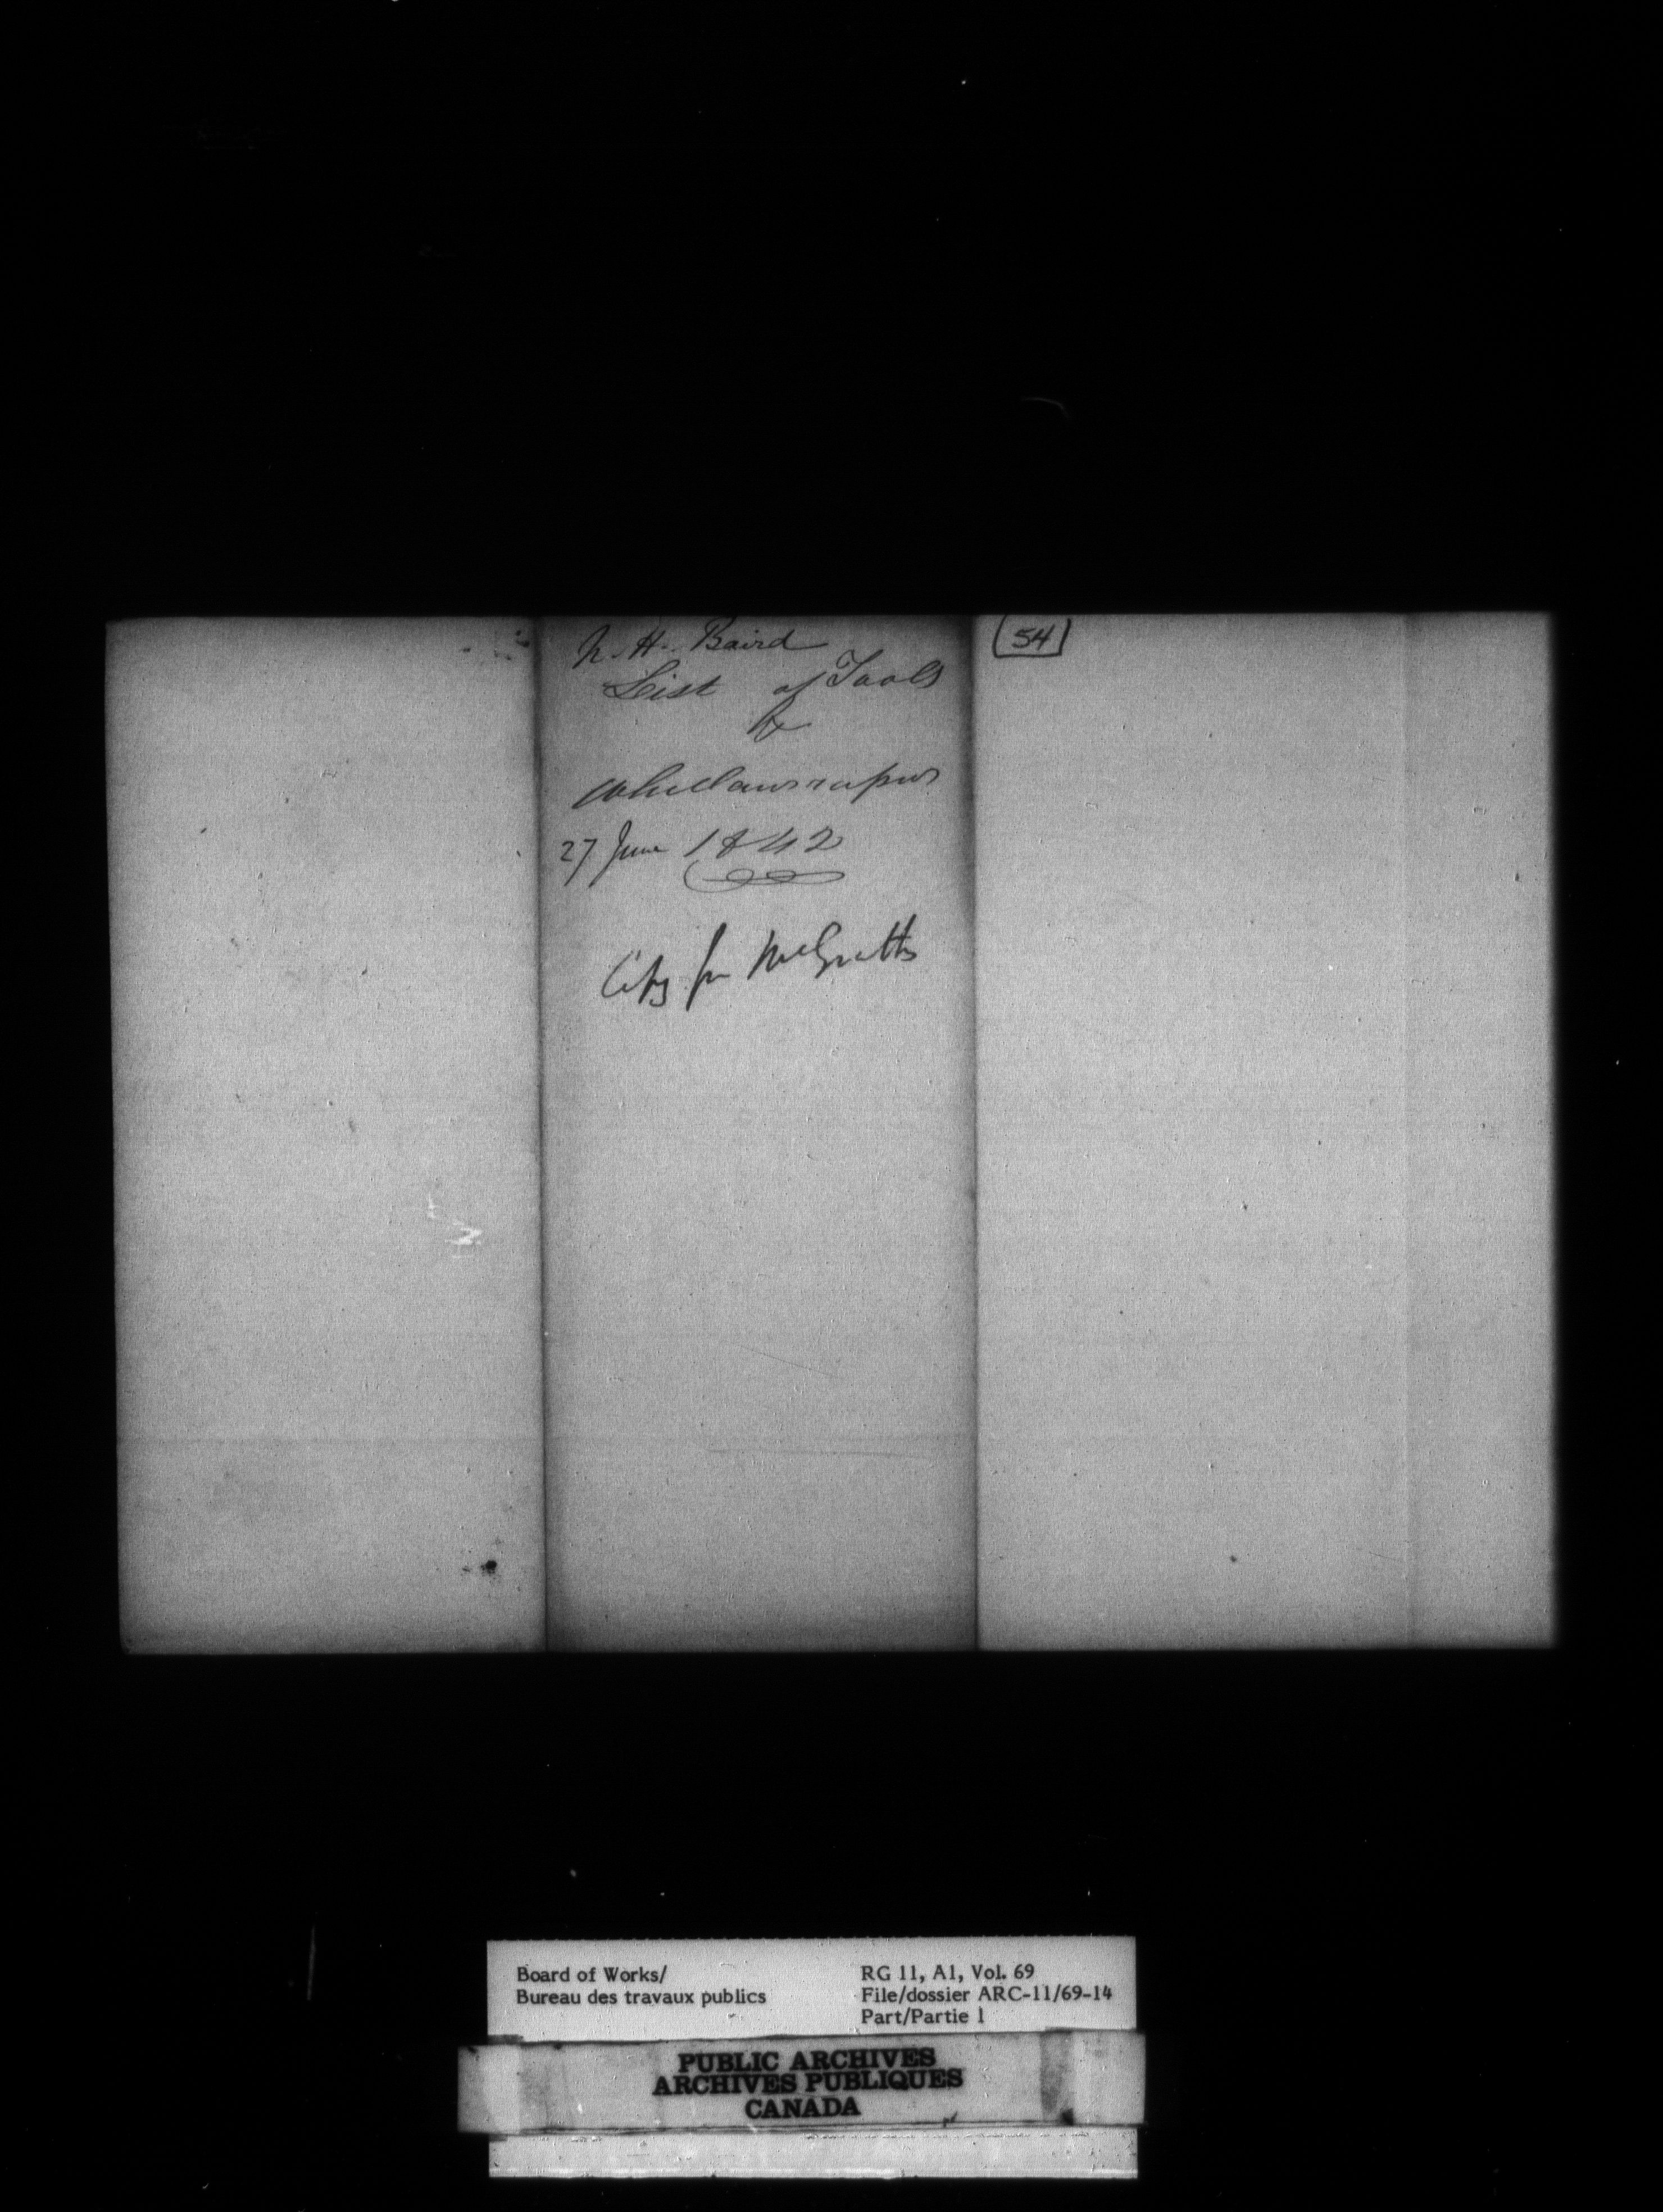 N. H. Baird
List of Tools
&c
Whellans rapids
27 June 1842
Copy for McGrath
54
Board of Works/
Bureau des travaux publics
RG 11, A1, Vol. 69
File/dossier ARC-11/69-14
Part/Partie 1
PUBLIC ARCHIVES
ARCHIVES PUBLIQUES
CANADA